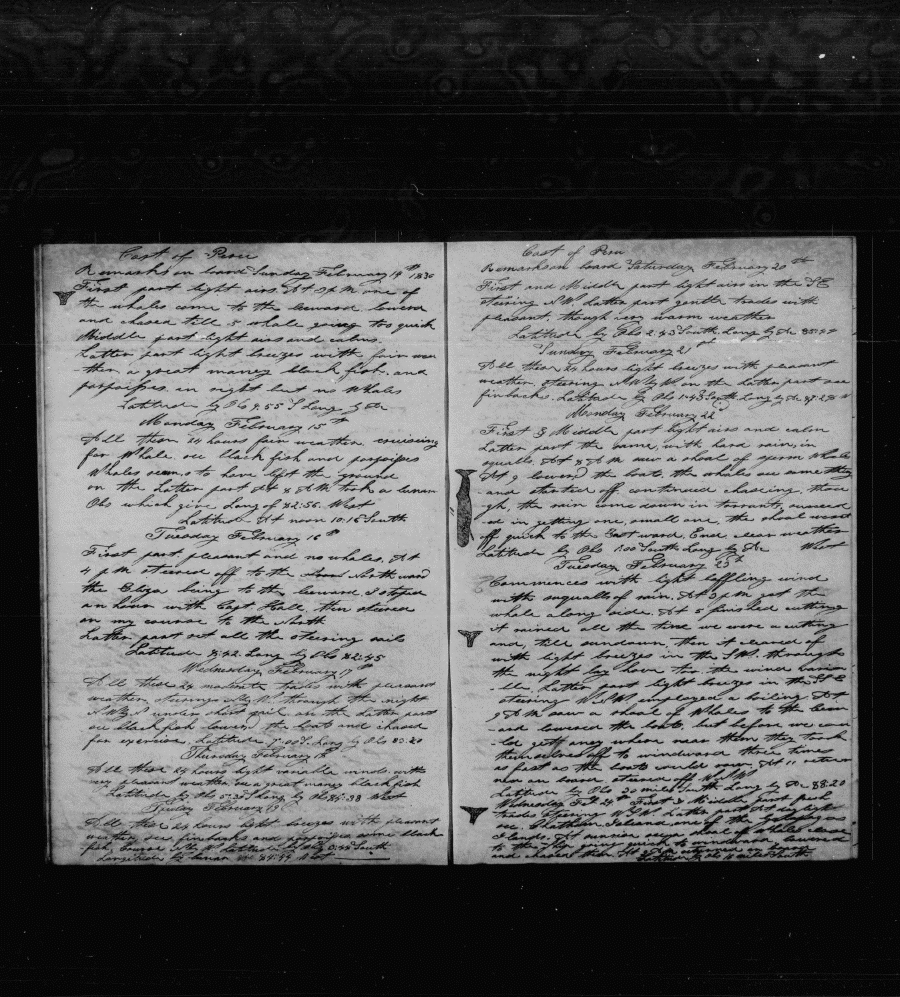 Cost of Peru
Remarks on board Sunday February 14th 1830
First part light airs. At 2 PM one of
the whales come to the leeward lowered
and chased till 5 whale going too quick
Middle part light airs and calms.
Latter part light breezes with fair wea
ther a great maney black fish. and
porpoises. in sight but no Whales
Latitude by Obs 9.55 S Long by Do
Monday February 15th
All these 24 hours fair weather cruising
for Whale. see black fish and porpoises
Whales seems to have left the ground
on the Latter part At 8 AM took a lunar
Obs which give Long of 82:56. West
Latitude At noon 10:16 South
Tuesday February 16th
First part pleasant and no whales. At
4 PM steered off to the North ward
the Eliza being to the leeward I stoped
an hour with Capt Hall, then steered
on my course to the North
Latter part set all the stearing sails
Latitude 8:42 Long by Obs 82:45
Wednesday February 17th
All these 24 moderate trades with pleasant
weather steering through the night
N.W. by N under short sail. on the Latter part
see black fish lowered the boats and chased
for exercise. Latitude 7:00 S. Long by Obs 83:20
Thursday February 18th
All these 24 hours light variable winds. with
very pleasant weather see a great maney black fish
Latitude by Obs South Long by Obs West
Friday February 19th
All these 24 hours light breezes with pleasant
weather see finbacks and porpoises some black
fish. Course N.W. Latitude by Obs South
Longitude by lunar Obs West
Cost of Peru
Remarks on board Saturday February 20th
First and Middle part light airs in the SE
steering N.W. Latter part gentle trades with
pleasant. though very warm weather
Latitude by Obs 2:43 South Long by Do
Sunday February 21st
All these 24 hours light breezes with pleasant
weather. steering N.W. by W. on the Latter part see
finbacks. Latitude by Obs 1:43 South Long by Do
Monday February 22d
First & Middle part light airs and calm
Latter part the same, with hard rain, in
squalls. At 8 AM saw a shoal of sperm Whale
At 9 lowered the boats. the whales see something
and started off continued chaseing, thou
gh, the rain come down in torrants, succeed
ed in getting one, small one, the shoal went
off quick to the Eastward. Ends clear weather
Latitude by Obs 1:00 South Long by Do West
Tuesday February 23d
Commences with light baffling wind
with squalls of rain. At 3 PM got the
whale along side. At 5 finished cutting
it rained all the time we were a cutting
and, till sundown, then it cleared of
with light breezes in the S.W. through
the night lay hove to. the wind varia
ble. Latter part light breezes in the S.E
steering W by N employed a boiling At
9 AM saw a shoal of Whales to the leew
ard lowered the boats, but before we cou
ld gett aney where near them they took
themselves off to windward three times
as fast as the boats could row. At 11 return
ed on board steered off W by N
Latitude by Obs 20 miles South Long by Do 88:20
Wednesday Feb. 24th First & Middle part fresh
trades steering W by N. Latter part first light
see Chatham Island one of the Galapagos
Islands. at meridian see a shoal of whales close
to the ship going quick to windward. lowered
and chased them At 2 PM returned on board